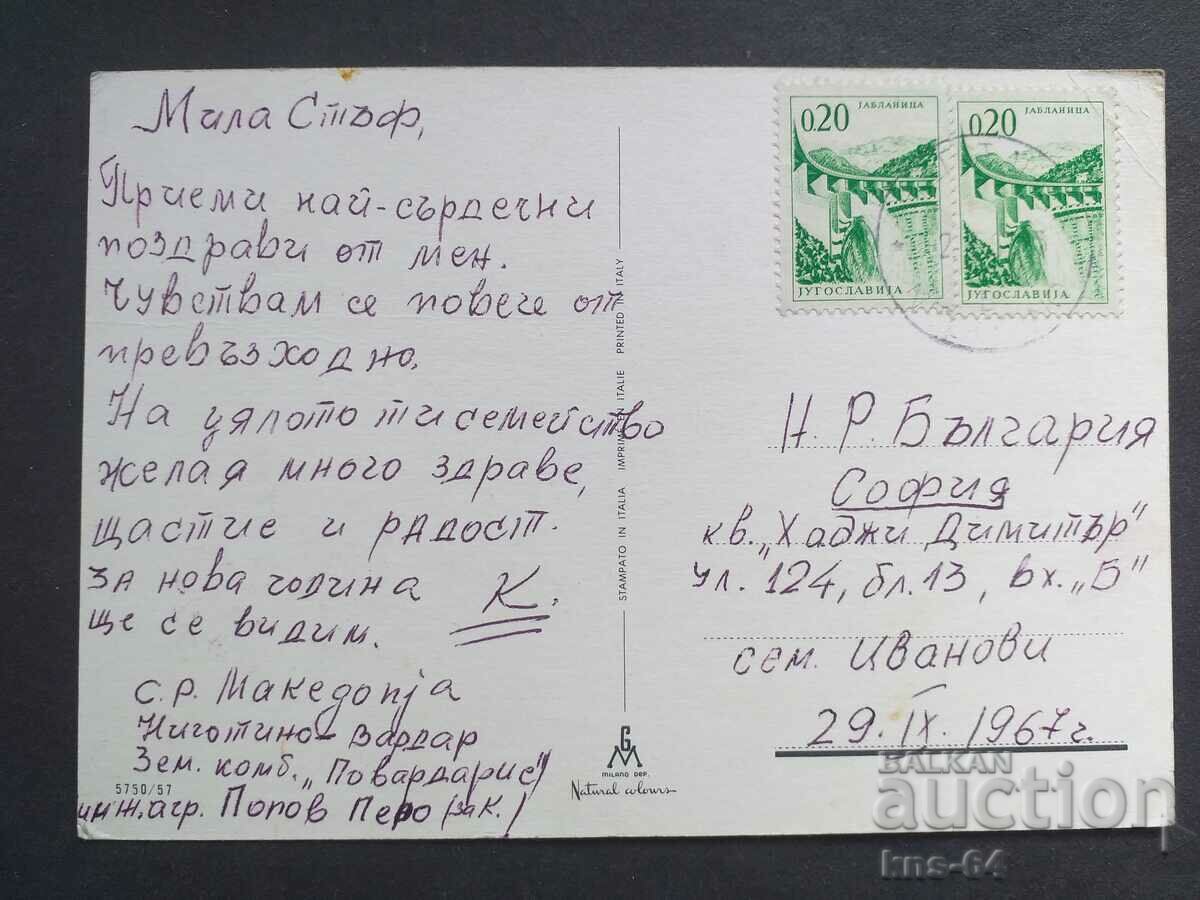 Мила Стъф,
Приеми най-сърдечни
поздрави от мен.
Чувствам се повече от
превъзходно.
На цялото ти семейство
желая много здраве,
щастие и радост.
За нова година
ще се видим.
К.
с.р. Македопја
Ниготино - Вардар
Зем. комб. „Повардарие"
инж. агр. Попов Перо (за К.)
5750/57
STAMPATO IN ITALIA IMPRIME EN ITALIE PRINTED IN ITALY
G M
MILANO DEP.
Natural colours
0.20 ЈАБЛАНИЦА
ЈУГОСЛАВИЈА
0.20 ЈАБЛАНИЦА
ЈУГОСЛАВИЈА
Н. Р. България
София
кв. „Хаджи Димитър"
ул. 124, бл. 13, вх. „Б"
сем. Иванови
29. IX. 1967 г.
BALKAN
auction
kns-64